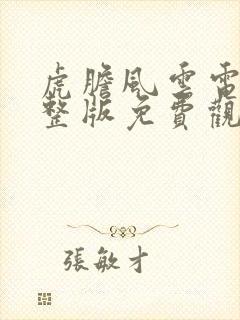 虎膽風雲電
整版免費觀
張敏才